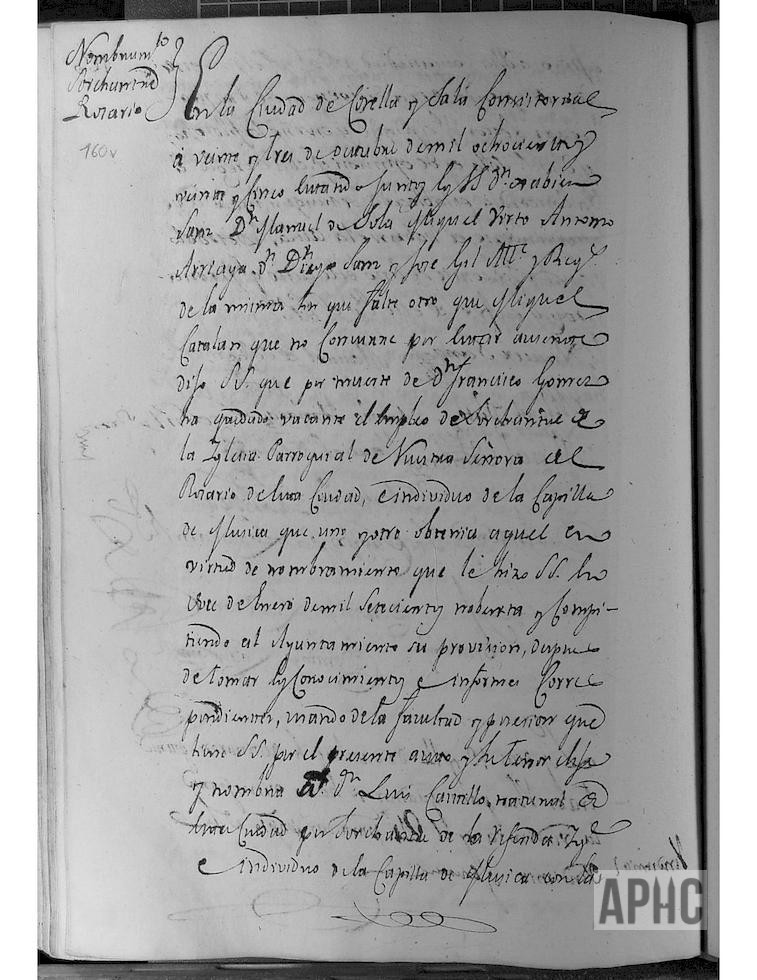 Nombram.to
Sorchantre
Rosario
160v
En la Ciudad de Corella y Sala Consistorial
a veinte y tres de octubre de mil ochocientos
veinte y Cinco estando Juntos los SS Dn. Xabier
Sanz Dn. Manuel de Sola Miguel Virto Antonio
Arriaga Dn. Diego Sanz y Jose Gil Alle. y Reg.s
de la misma sin que falte otro que Miguel
Catalan que no Concurre por estar ausente
dijo SS. que por muerte de dn. Francisco Gomez
ha quedado vacante el Empleo de Sorchantre de
la Yglesia Parroquial de Nuestra Señora del
Rosario de esta Ciudad, e individuo de la Capilla
de Musica que uno y otro obtenia aquel en
virtud de nombramiento que le hizo SS. en
doce de Enero de mil Setecientos nobenta y Compi-
tiendo al Ayuntamiento su provision, despues
de tomar los Conocimientos e informes Corres
pondientes, usando de la facultad y posesion que
tiene SS. por el presente auto y su tenor elije
y nombra a dn. Luis Castello natural de
esta Ciudad por Sorchantre de la referida Ygl.a
e individuo de la Capilla de Musica con
APHC